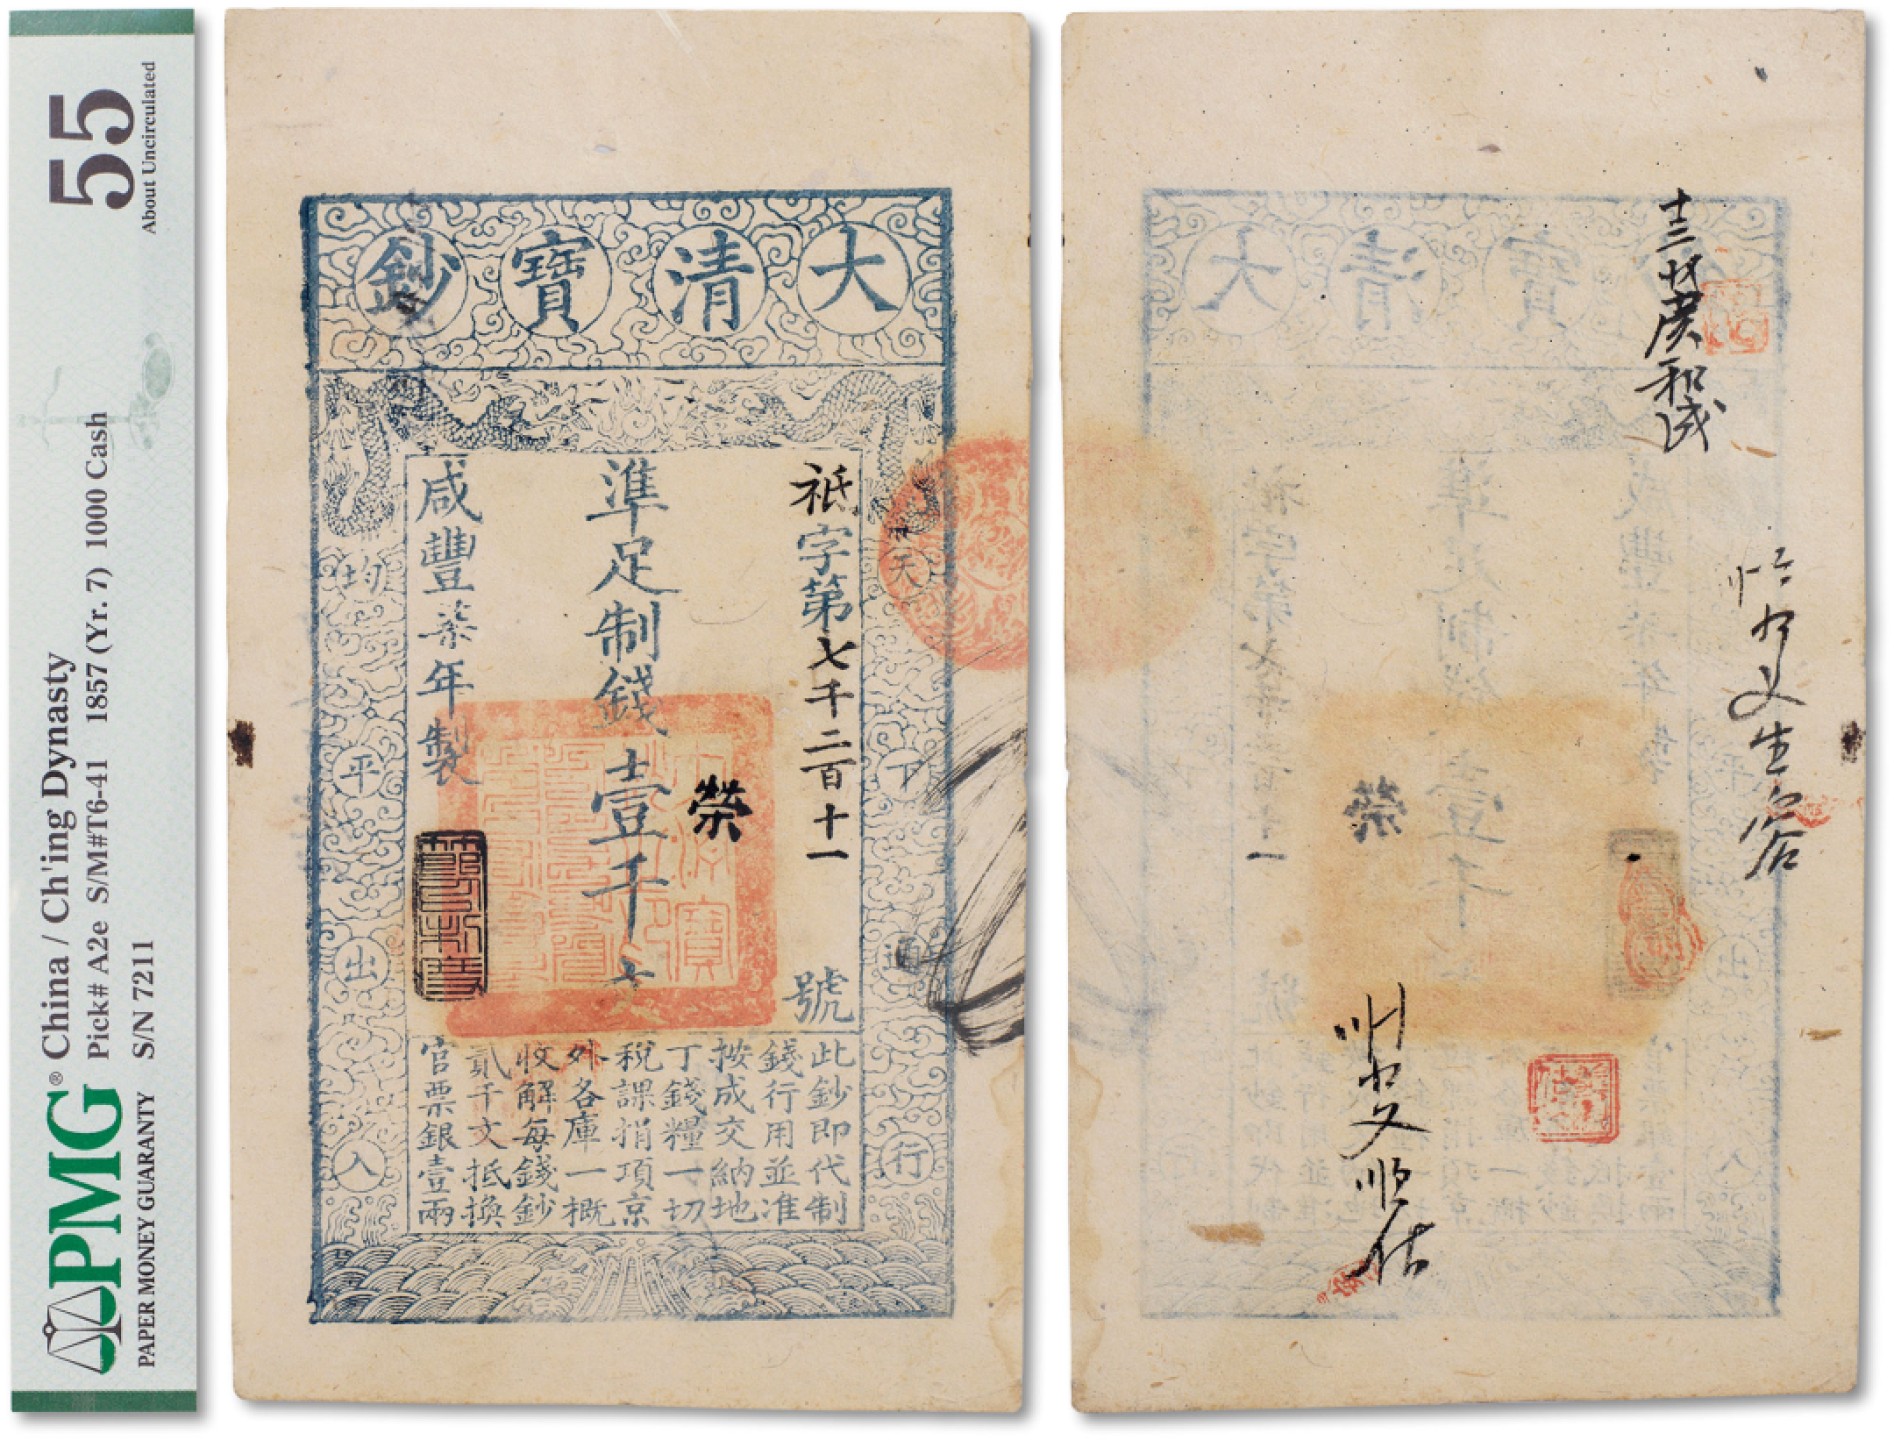 PMG® China / Ch'ing Dynasty
Pick# A2e S/M#T6-41 1857 (Yr. 7) 1000 Cash
PAPER MONEY GUARANTY S/N 7211
55
About Uncirculated
大清寶鈔
祇字第七千二百十一號
準足制錢壹千文
咸豐柒年製
榮
天下通行
均平出入
此鈔即代制
錢行用並准
按成交納地
丁錢糧一切
稅課捐項京
外各庫一概
收解每錢鈔
貳千文抵換
官票銀壹兩